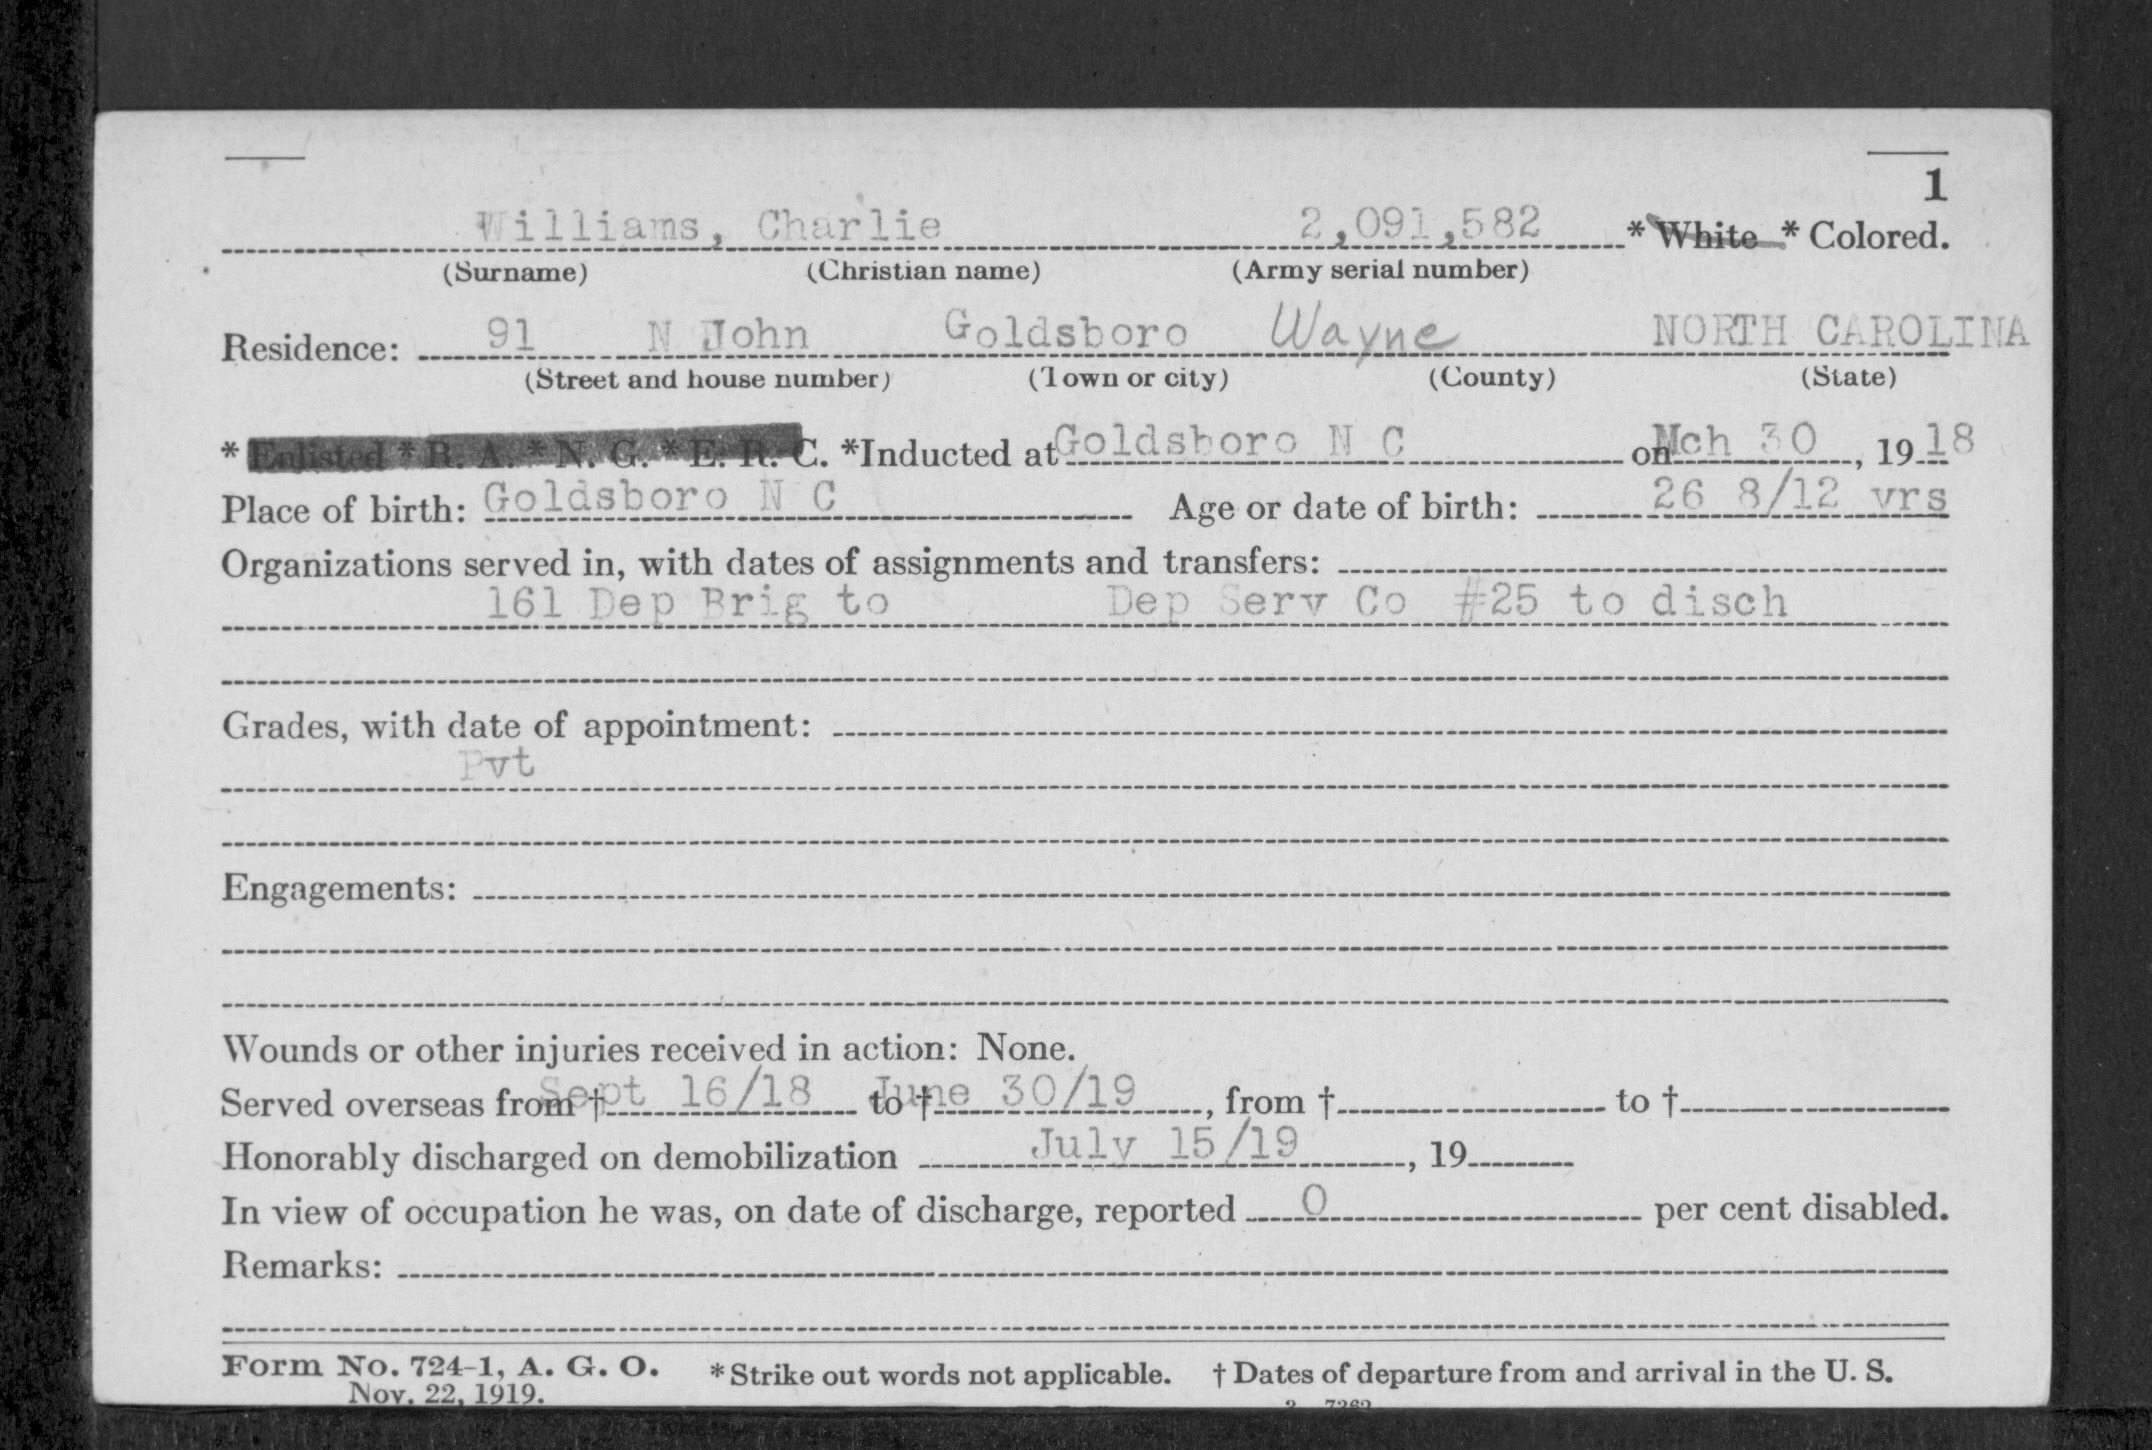 1
Williams, Charlie 2,091,582 * White * Colored.
(Surname) (Christian name) (Army serial number)
Residence: 91 N John Goldsboro Wayne NORTH CAROLINA
(Street and house number) (Town or city) (County) (State)
* Enlisted * R. A. * N. G. * E. R. C. *Inducted at Goldsboro N C on Mch 30, 19 18
Place of birth: Goldsboro N C Age or date of birth: 26 8/12 yrs
Organizations served in, with dates of assignments and transfers:
161 Dep Brig to Dep Serv Co #25 to disch
Grades, with date of appointment:
Pvt
Engagements:
Wounds or other injuries received in action: None.
Served overseas from † Sept 16/18 to † June 30/19, from † to †
Honorably discharged on demobilization July 15/19, 19
In view of occupation he was, on date of discharge, reported 0 per cent disabled.
Remarks:
Form No. 724-1, A. G. O. * Strike out words not applicable. † Dates of departure from and arrival in the U. S.
Nov. 22, 1919.